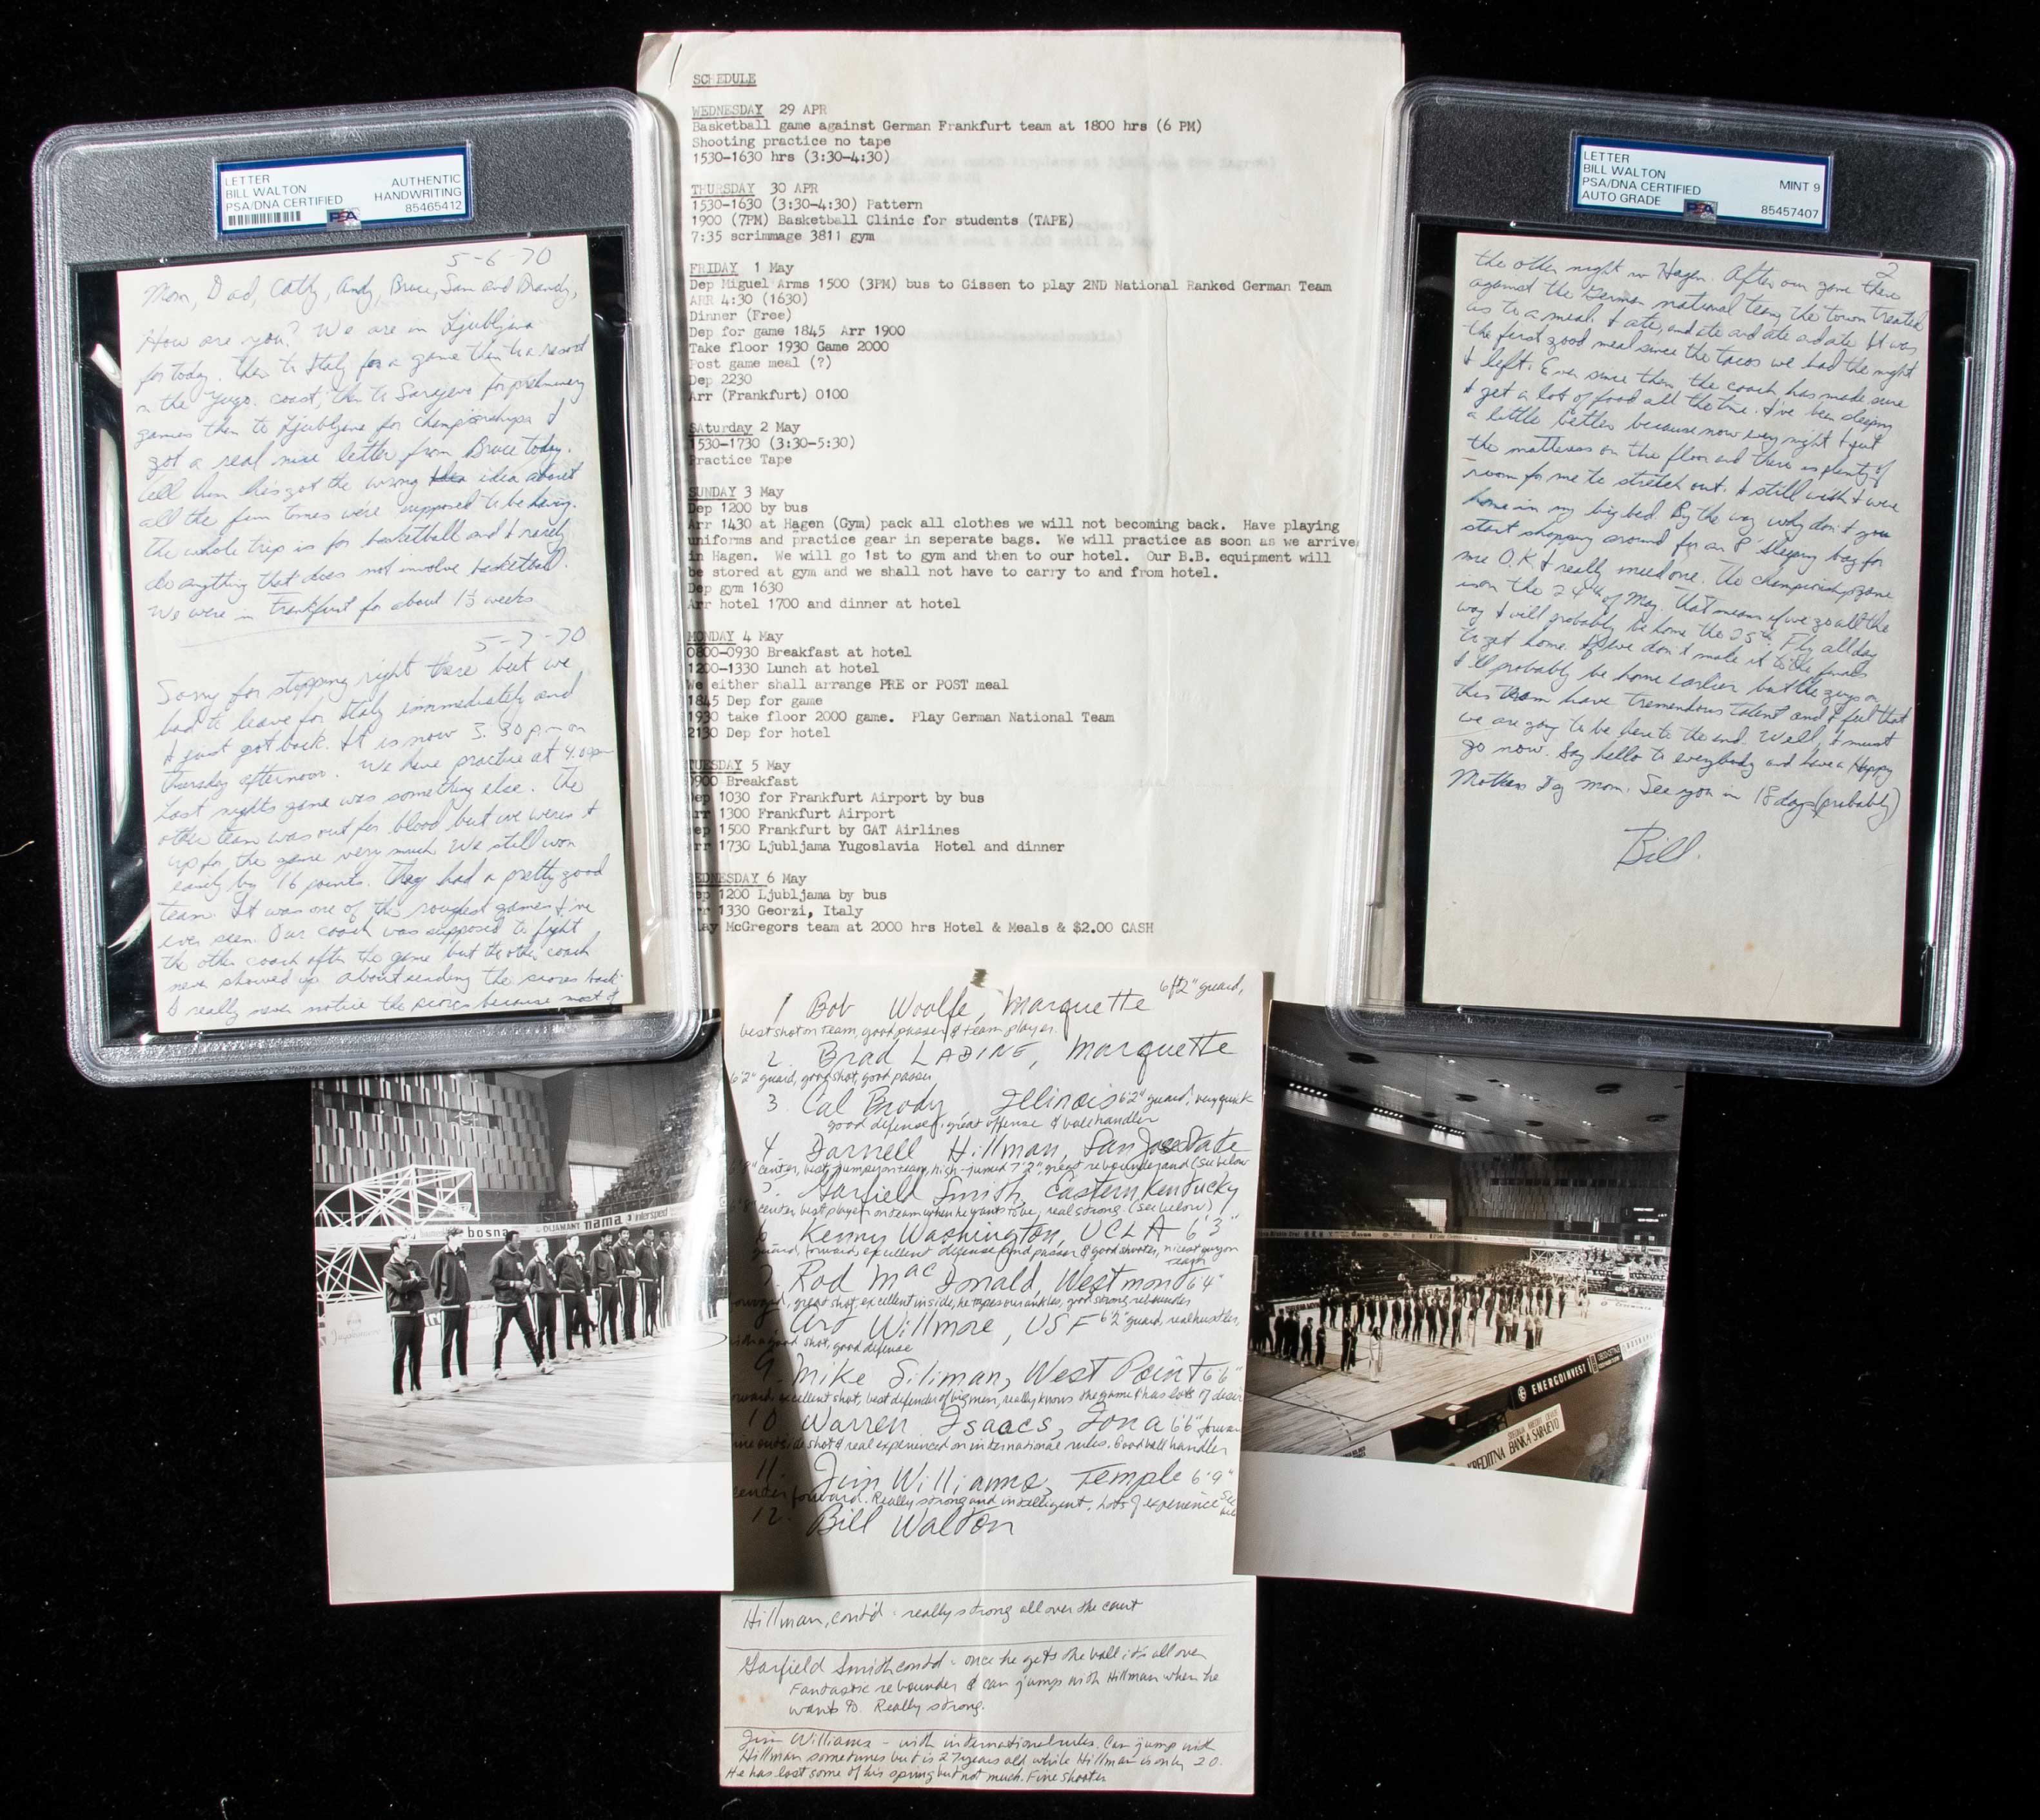 SCHEDULE
WEDNESDAY 29 APR
Basketball game against German Frankfurt team at 1800 hrs (6 PM)
Shooting practice no tape
1530-1630 hrs (3:30-4:30)
THURSDAY 30 APR
1530-1630 (3:30-4:30) Pattern
1900 (7PM) Basketball Clinic for students (TAPE)
7:35 scrimmage 3811 gym
FRIDAY 1 May
Dep Miguel Arms 1500 (3PM) bus to Gissen to play 2ND National Ranked German Team
ARR 4:30 (1630)
Dinner (Free)
Dep for game 1845 Arr 1900
Take floor 1930 Game 2000
Post game meal (?)
Dep 2230
Arr (Frankfurt) 0100
SAturday 2 May
1530-1730 (3:30-5:30)
Practice Tape
SUNDAY 3 May
Dep 1200 by bus
Arr 1430 at Hagen (Gym) pack all clothes we will not becoming back. Have playing
uniforms and practice gear in seperate bags. We will practice as soon as we arrive
in Hagen. We will go 1st to gym and then to our hotel. Our B.B. equipment will
be stored at gym and we shall not have to carry to and from hotel.
Dep gym 1630
Arr hotel 1700 and dinner at hotel
MONDAY 4 May
0800-0930 Breakfast at hotel
1200-1330 Lunch at hotel
We either shall arrange PRE or POST meal
1845 Dep for game
1930 take floor 2000 game. Play German National Team
2130 Dep for hotel
TUESDAY 5 May
0900 Breakfast
ep 1030 for Frankfurt Airport by bus
rr 1300 Frankfurt Airport
ep 1500 Frankfurt by GAT Airlines
rr 1730 Ljubljama Yugoslavia Hotel and dinner
EDNESDAY 6 May
ep 1200 Ljubljama by bus
rr 1330 Georzi, Italy
lay McGregors team at 2000 hrs Hotel & Meals & $2.00 CASH
LETTER
BILL WALTON
PSA/DNA CERTIFIED
AUTHENTIC
HANDWRITING
85465412
PSA
5-6-70
Mom, Dad, Cathy, Andy, Bruce, Sam and Brandy,
How are you? We are in Ljubljana
for today. Then to Italy for a game then to a resort
on the Yugo. coast, then to Sarajevo for preliminary
games then to Ljubljana for championships. I
got a real nice letter from Bruce today.
Tell him he's got the wrong idea about
all the fun times we're supposed to be having.
The whole trip is for basketball and I rarely
do anything that does not involve basketball.
We were in Frankfurt for about 1½ weeks
5-7-70
Sorry for stopping right there but we
had to leave for Italy immediately and
I just got back. It is now 3:30 p.m on
Thursday afternoon. We have practice at 4:00pm
Last nights game was something else. The
other team was out for blood but we weren't
up for the game very much. We still won
easily by 16 points. They had a pretty good
team. It was one of the roughest games I've
ever seen. Our coach was supposed to fight
the other coach after the game but the other coach
never showed up. About sending the scores back
I really never notice the scores because most of
LETTER
BILL WALTON
PSA/DNA CERTIFIED
AUTO GRADE
MINT 9
85457407
PSA
2
the other night in Hagen. After our game there
against the German national team the town treated
us to a meal. I ate, and ate and ate and ate. It was
the first good meal since the tacos we had the night
I left. Ever since then, the coach has made sure
I get a lot of food all the time. I've been sleeping
a little better because now every night I put
the mattress on the floor and there is plenty of
room for me to stretch out. I still wish I were
home in my big bed. By the way why don't you
start shopping around for an 8' sleeping bag for
me O.K. I really need one. The championship game
is on the 24th of May. That means if we go all the
way I will probably be home the 25th. Fly all day
to get home. If we don't make it to the finals
I'll probably be home earlier but the guys on
this team have tremendous talent and I feel that
we are going to be here to the end. Well, I must
go now. Say hello to everybody and have a Happy
Mothers Day mom. See you in 18 days (probably)
Bill.
1 Bob Woolfe, Marquette 6ft2" guard,
best shot on team, good passer & team player.
2. Brad LABINE, Marquette
6'2" guard, good shot, good passer
3. Cal Brody, Illinois 6'2" guard, very quick
good defense, great offense & ballhandler
4. Darnell Hillman, San Jose State
center, best jumper on team, high-jumped 7'2", great rebounder and (see below
Garfield Smith, Eastern Kentucky
6'8" center best player on team when he wants to be, real strong. (see below)
6 Kenny Washington, UCLA 6'3"
guard, forward, excellent defense and passer & good shooter, nicest guy on
team
7. Rod MacDonald, Westmont 6'4"
forward, great shot, excellent inside, he tapes our ankles, good strong rebounder
Art Willmore, USF 6'2" guard, real hustler,
with a good shot, good defense
9. Mike Siliman, West Point 6'6"
forward, excellent shot, best defender of big men, really knows the game & has lots of desire
10 Warren Isaacs, Iona 6'6" forward
fine outside shot & real experienced on international rules. Good ball handler
11. Jim Williams, Temple 6'9"
center forward. Really strong and intelligent. Lots of experience See
below
12. Bill Walton
Hillman, cont'd - really strong all over the court
Garfield Smith contd - once he gets the ball it's all over
Fantastic rebounder & can jump with Hillman when he
wants to. Really strong.
Jim Williams - with international rules. Can jump with
Hillman sometimes but is 27 years old while Hillman is only 20.
He has lost some of his spring but not much. Fine shooter
bosna
DIJAMANT
nama
intersped
ENERGOINVEST
KREDITNA BANKA SARAJEVO